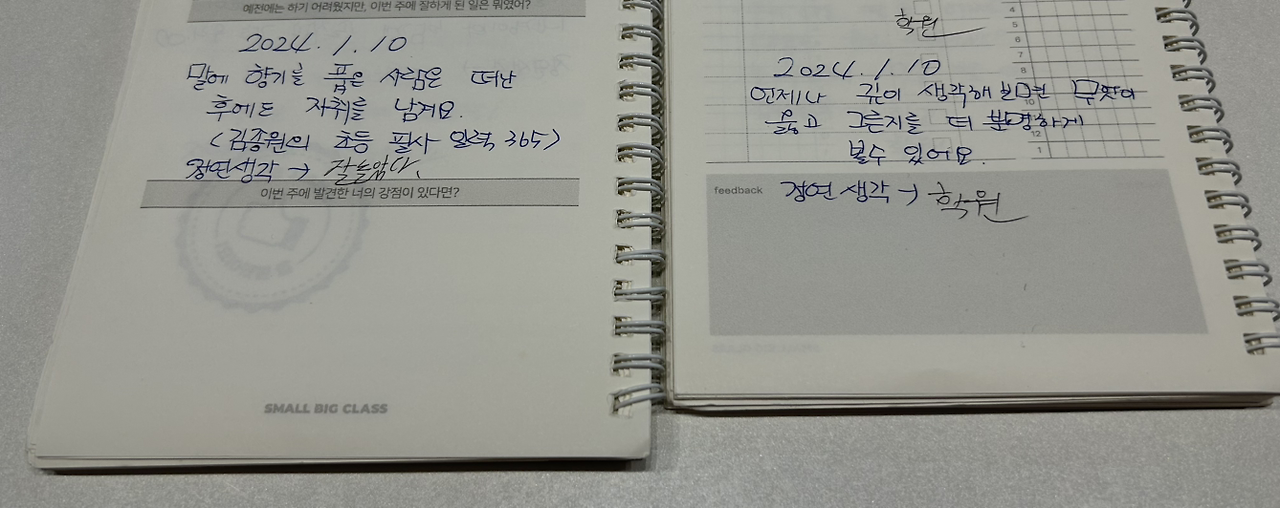 예전에는 하기 어려웠지만, 이번 주에 잘하게 된 일은 뭐였어?
2024. 1. 10
말에 향기를 품은 사람은 떠난
후에도 자취를 남겨요.
<김종원의 초등 필사 일력 365>
정연생각 → 잘늙았다.
이번 주에 발견한 너의 강점이 있다면?
SMALL BIG CLASS
4
학원
5
6
7
8
2024. 1. 10
언제나 깊이 생각해보면 무엇이
10
옳고 그른지를 더 분명하게
12
볼수 있어요.
1
feedback
정연 생각 → 학원